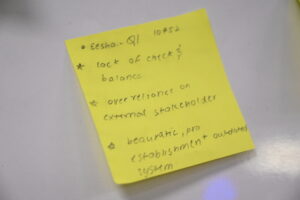 • Eesha - Q1 10#52
* lack of check &
balance
* over reliance on
external stakeholder
* beauratic, pro
establishment
system